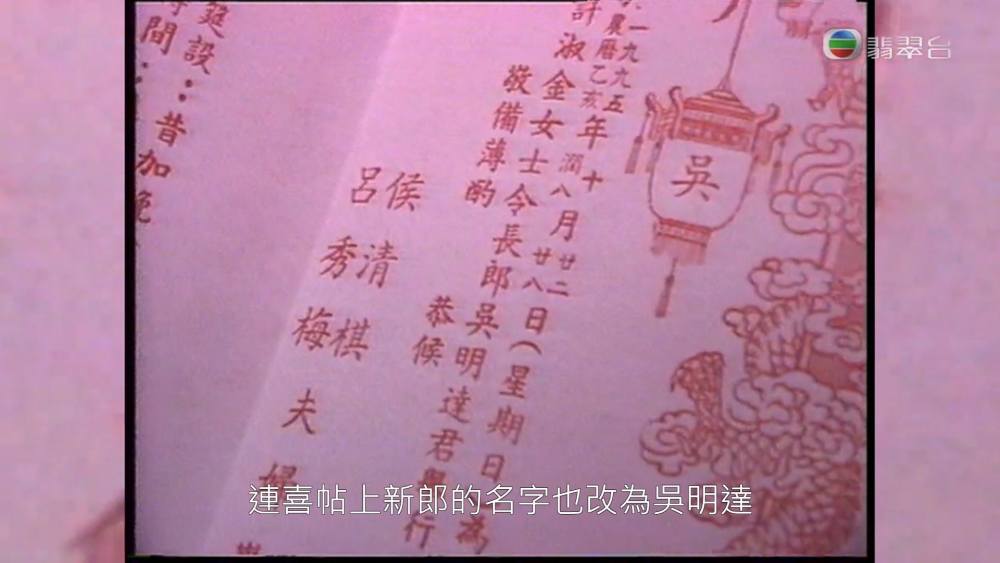 翡翠台
吳
一九九五
農曆乙亥
年
十
潤八
月
廿二
廿八
日(星期日
為
許淑金女士令長郎吳明達君舉行
敬備薄酌 恭候
侯清棋
呂秀梅
夫婦
筵設:昔加
間:
連喜帖上新郎的名字也改為吳明達